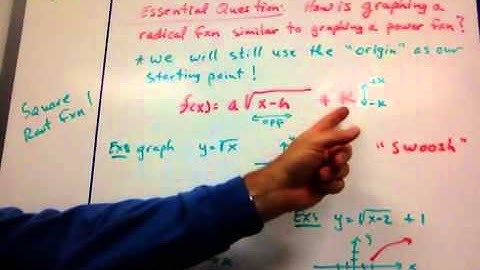 Essential Question: How is graphing a
radical fxn similar to graphing a power fxn?
* We will still use the "origin" as our
starting point!
Square
Root Fxn!
f(x) = a√x-h + k
+k
-k
opp
Ex: graph y=√x
"Swoosh"
Ex: y=√x-2 + 1
y
x